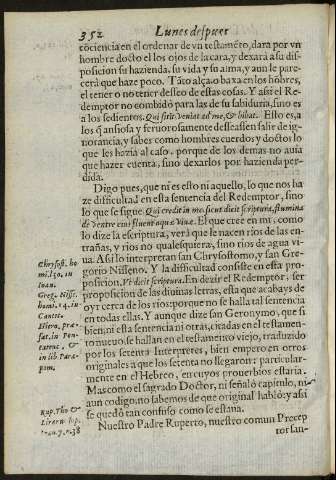 352 Lunes despues
cociencia en el ordenar de vn testamẽto, dara por vn
hombre docto el los ojos de la cara, y dexará a su dis-
posicion su hazienda, su vida y su alma, y aun le pare-
cerà que haze poco. Tãto alçaxo baxa en los hõbres,
el tener o no tener desseo de estas cosas. Y assi el Re-
demptor no combidó para las de su sabiduria, sino es
a los sedientos. Qui sitit veniat ad me, & bibat. Esto es, a
los q̃ ansiosa y feruorosamente desseassen salir de ig-
norancia, y sabes como hombres cuerdos y doctos lo
que les hazia al caso, porque de los demas no auia
que hazer cuenta, sino dexarlos por hazienda per-
dida.
Digo pues, que ni es esto ni aquello, lo que nos ha-
ze dificultad en esta sentencia del Redemptor, sino
lo que se sigue. Qui credit in me, sicut dicit scriptura, flumina
de ventre eius fluent aquæ viuæ. El que cree en mi, como
lo dize la escriptura, verá que le nacen rios de las en-
trañas, y rios no qualesquiera, sino rios de agua vi-
ua. Assi lo interpretan san Chrysostomo, y san Gre-
gorio Nisseno. Y la difficultad consiste en esta pro-
posicion, Vt dicit scriptura. En dezir el Redemptor, ser
proposicion de las diuinas letras, esta que acabays de
oyr cerca de los rios: porque no se halla tal sentencia
en todas ellas. Y aunque dize san Geronymo, que si
bien, ni esta sentencia ni otras, citadas en el testamen-
to nueuo se hallan en el testamento viejo, traduzido
por los setenta Interpretes, bien empero en otros
originales a que los setenta no llegaron: particular-
mente en el Hebreo, en cuyos prouerbios estaria.
Mas como el sagrado Doctor, ni señaló capitulo, ni
aun codigo, no sabemos de que original habló: y assi
se quedó tan confuso como se estaua.
Nuestro Padre Ruperto, nuestro comun Precep
tor san-
Chrysost. ho
mil. 50. in
Ioan.
Greg. Niss.
homi. 14. in
Cantic.
Hiero. præ-
fat. in Pen-
tateuc. &
in lib. Para-
pom.
Rup. Tho &